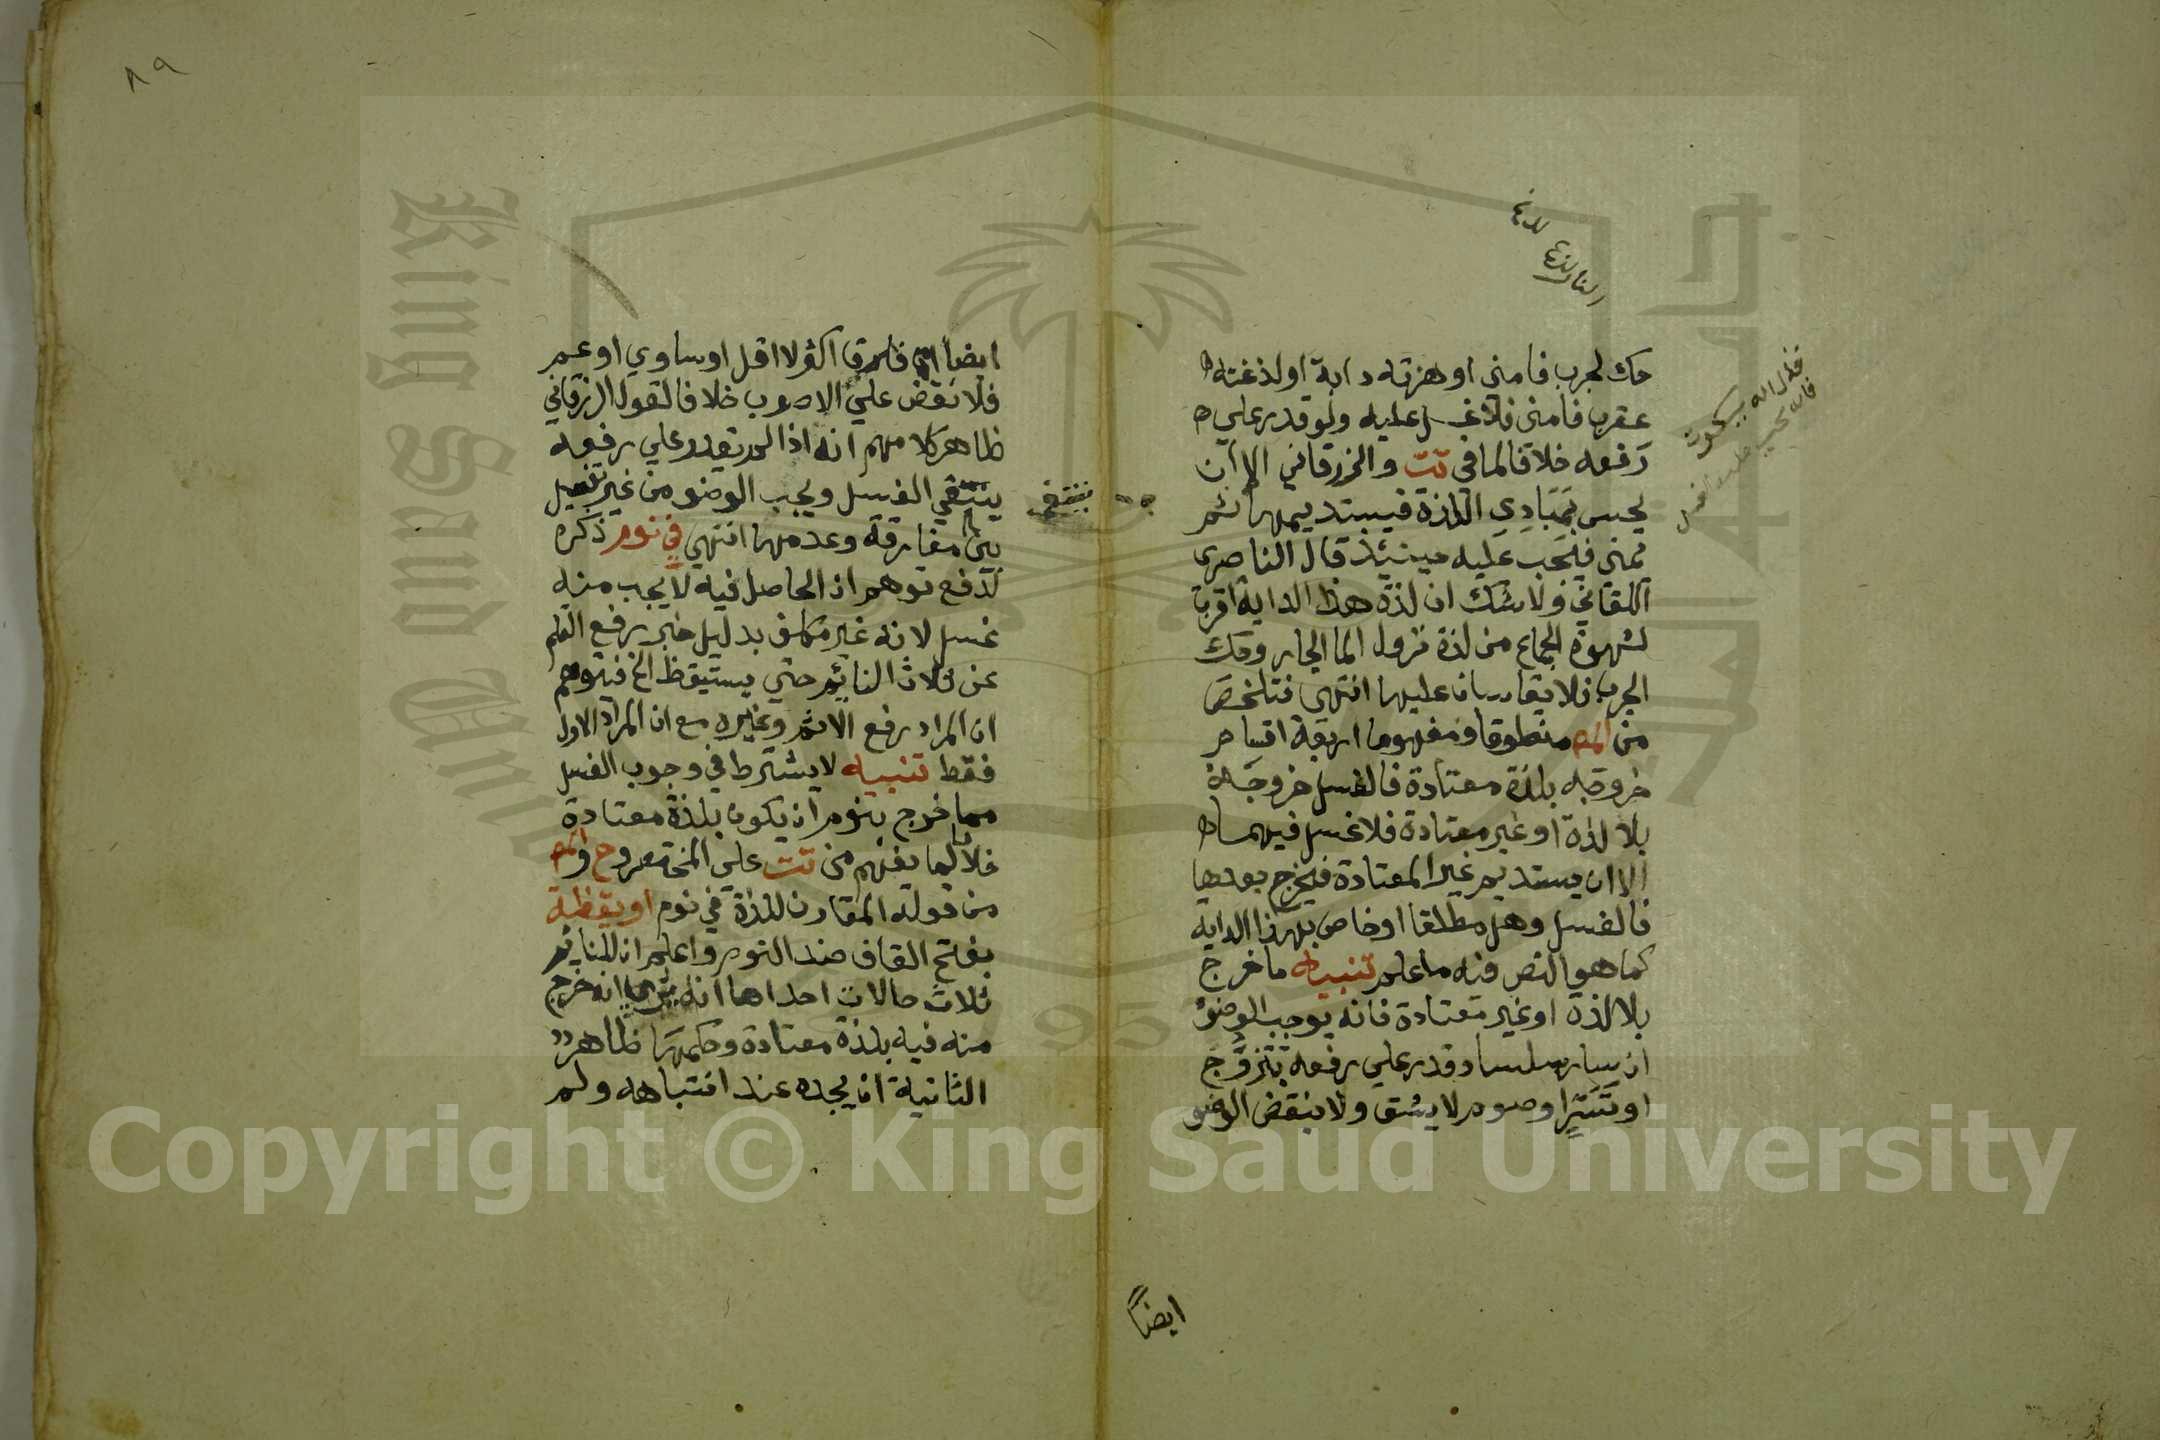 حك لجرب فامنى او هزته دابة او لذغته
عقرب فامنى فلا غسل عليه ولو قدر على
رفعه خلافا لما في تت والزرقاني الا ان
يحس بمبادي اللذة فيستديمها ثم
يمني فيجب عليه حينئذ قال الناصر
اللقاني ولا شك ان لذة هذا الدابة اقرب
لشهوة الجماع من لذة نزول الما الحار وحك
الجرب فلا يقاسان عليها انتهى فتلخص
من المص منطوقا ومفهوما اربعة اقسام
خروجه بلذة معتادة فالغسل خروجه
بلا لذة او غير معتادة فلا غسل فيهما
الا ان يستديم غير المعتادة فيخرج بعدها
فالغسل وهل مطلقا او خاص بهذا الدابه
كما هو النص فيه ما علم تنبيه ما خرج
بلا لذة او غير معتادة فانه يوجب الوضو
ان سا سلسا وقدر على رفعه بتزوج
او تسر او صوم لا يشق ولا ينقض الوضو
ايضا
٨٩
ايضا ان فارق اكثر لا اقل او ساوي او عم
فلا نقض على الاصوب خلافا لقول الزرقاني
ظاهر كلامهم انه اذا لم يقدر على رفعه
ينتفي الغسل ويجب الوضو من غير تفصيل
بين مفارقة وعدمها انتهي في نوم ذكره
لدفع توهم ان الحاصل فيه لا يجب منه
غسل لانه غير مكلف بدليل خبر رفع القلم
عن ثلاث النائم حتي يستيقظ الخ فيتوهم
ان المراد رفع الاثم وغيره مع ان المراد الاول
فقط تنبيه لا يشترط في وجوب الغسل
مما خرج بنوم ان يكون بلذة معتادة
خلافا لما يفهم من تت على المختصر وح والمص
من قوله المقارن للذة في نوم او يقظة
بفتح القاف ضد النوم واعلم ان للنائم
ثلاث حالات احداها انه يرى انه خرج
منه فيه بلذة معتادة وحكمها ظاهر
الثانية ان يجده عند انتباهه ولم
ينتفي